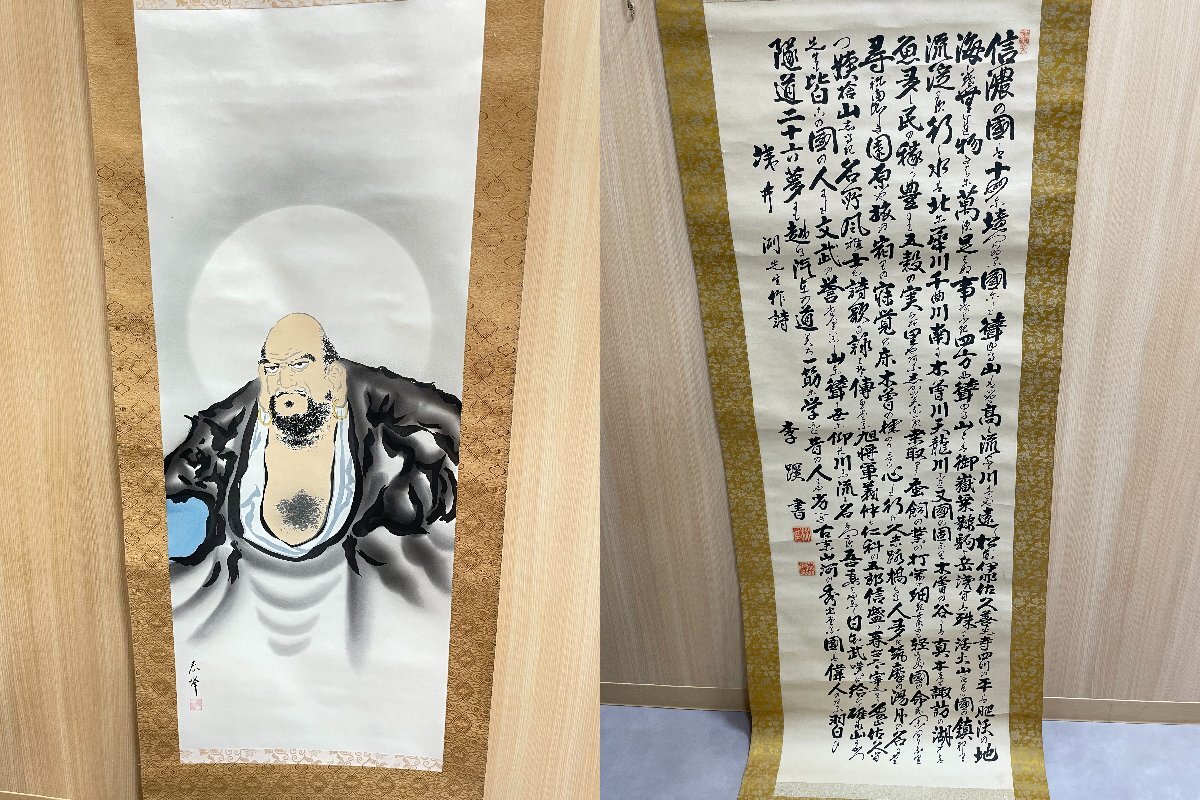 信濃の國は十州に境つらぬる國にして聳ゆる山はいや高く流るゝ川はいや遠し松本伊奈佐久善光寺四つの平は肥沃の地
海こそなけれ物さわに萬づ足らわぬ事ぞなき四方に聳ゆる山々は御嶽乗鞍駒ヶ岳浅間は殊に活火山いづれも國の鎮めなり
流れ淀まずゆく水は北に犀川千曲川南に木曽川天龍川これまた國の固めなり木曽の谷には真木茂り諏訪の湖には
魚多し民の稼も豊かにて五穀の実らぬ里やあるしかのみならず桑取りて蚕飼の業の打ちひらけ細きよすがも軽からぬ國の命を繋ぐなり
尋ねまほしき園原や旅の宿りの寝覚の床木曽の棧かけし世も心して行け久米路橋くる人多き筑摩の湯月の名にたつ
姨捨山しるき名所と風雅士が詩歌に詠てぞ傳へたる旭将軍義仲も仁科の五郎信盛も春台太宰先生も象山佐久間
先生も皆この國の人にして文武の誉たぐひなく山と聳えて世に仰ぎ川と流れて名は尽ず吾妻はやとし日本武嘆き給ひし碓氷山穿つ
隧道二十六夢にも越ゆる汽車の道みち一筋に学びなば昔の人にや劣るべき古来山河の秀でたる國は偉人のある習ひ
浅井洌先生作詩
李蹊書